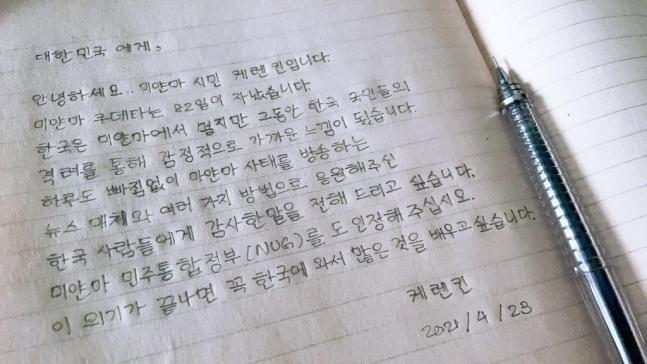 대한민국 에게,
안녕하세요.. 미얀마 시민 케렌킨입니다.
미얀마 쿠데타는 82일이 지났습니다.
한국은 미얀마에서 멀지만 그동안 한국 국민들의
격려를 통해 감정적으로 가까운 느낌이 됬습니다.
하루도 빠짐없이 마얀마 사태를 방송하는
뉴스 매체와 여러 가지 방법으로 응원해주신
한국 사람들에게 감사한맘을 전해 드리고 싶습니다.
미얀마 민주통합정부(NUG)를 도 인정해 주십시오.
이 의기가 끝나면 꼭 한국에 와서 많은 것을 배우고 싶습니다.
케렌킨
2021/4/23